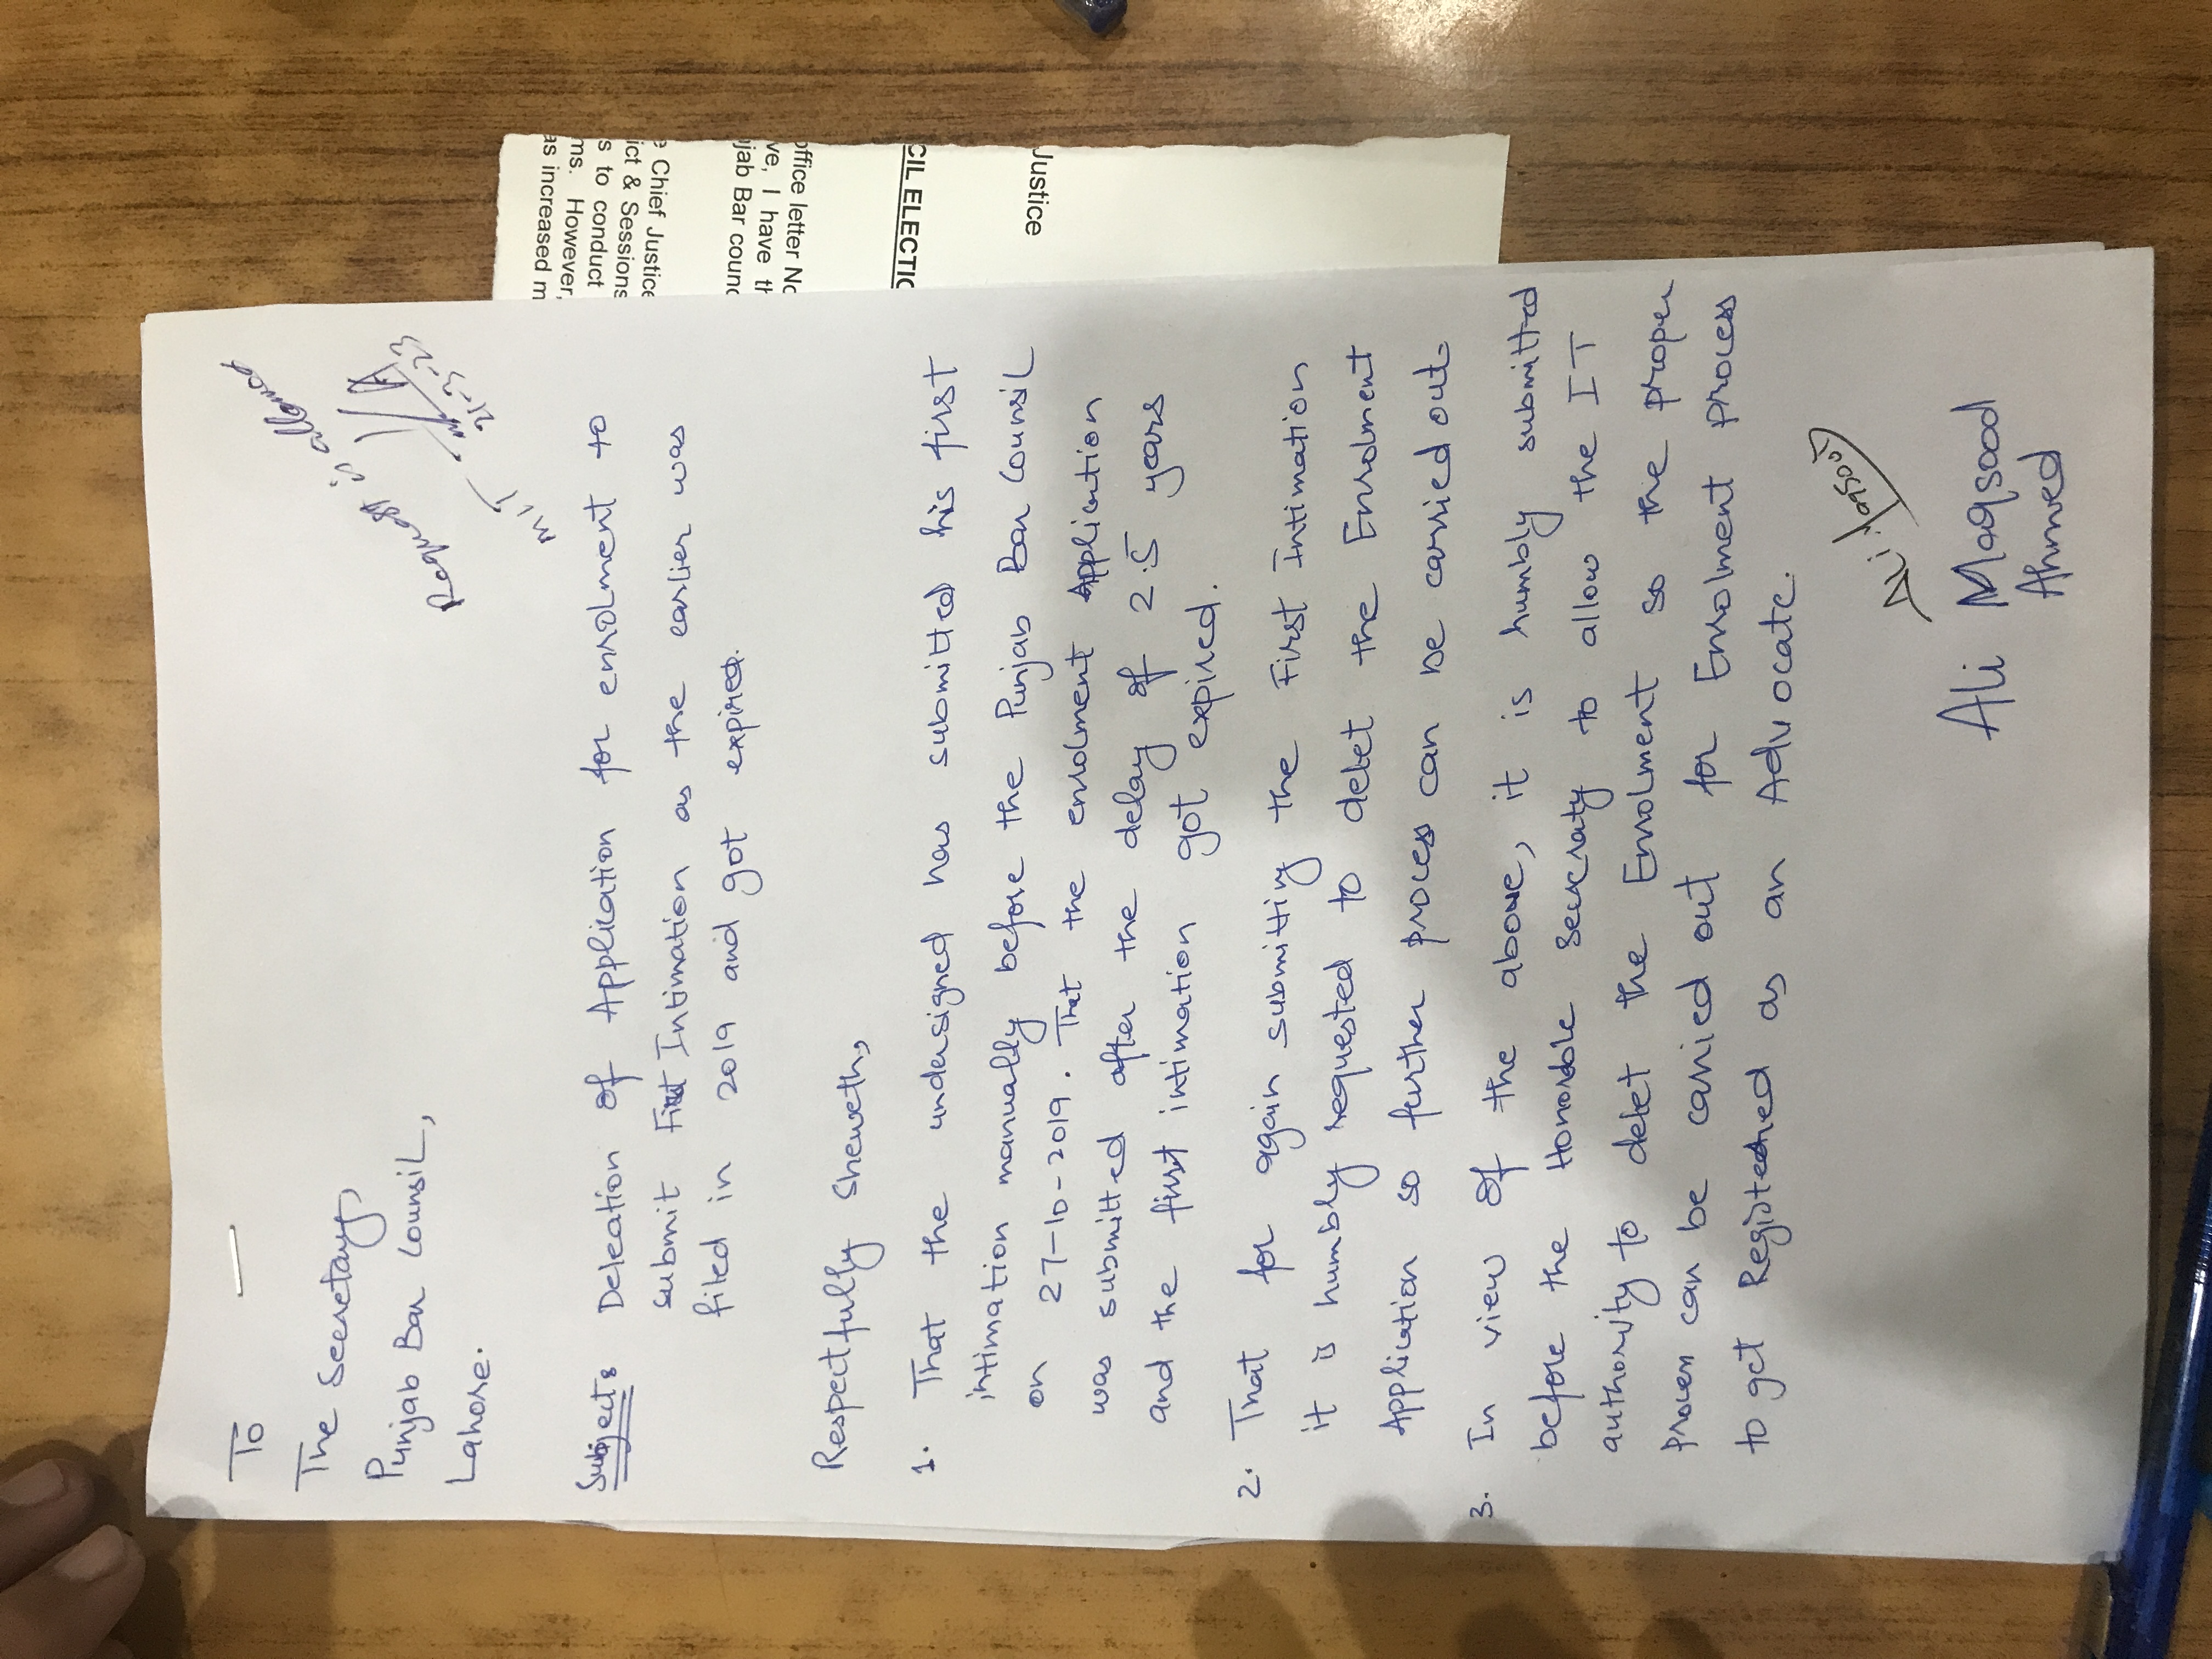 To
The Secretary,
Punjab Bar Counsil,
Lahore.
Request is allowed
21-3-23
M I T
Subject: Deleation of Application for enrolment to
submit First Intimation as the earlier was
filed in 2019 and got expired.
Respectfully Sheweth,
1. That the undersigned has submitted his first
intimation manually before the Punjab Bar Counsil
on 27-10-2019. That the enrolment Application
was submitted after the delay of 2.5 years
and the first intimation got expired.
2. That for again submitting the First Intimation
it is humbly requested to delet the Enrolment
Application so further process can be carried out.
3. In view of the above, it is humbly submitted
before the Honorable Seucraty to allow the IT
authority to delet the Enrolment so the proper
process can be carried out for Enrolment process
to get Registered as an Advocate.
Ali Maqsood
Ali Maqsood
Ahmed
Justice
CIL ELECTIO
office letter No
ve, I have th
jab Bar counc
e Chief Justice
ict & Sessions
s to conduct
ms. However,
as increased m